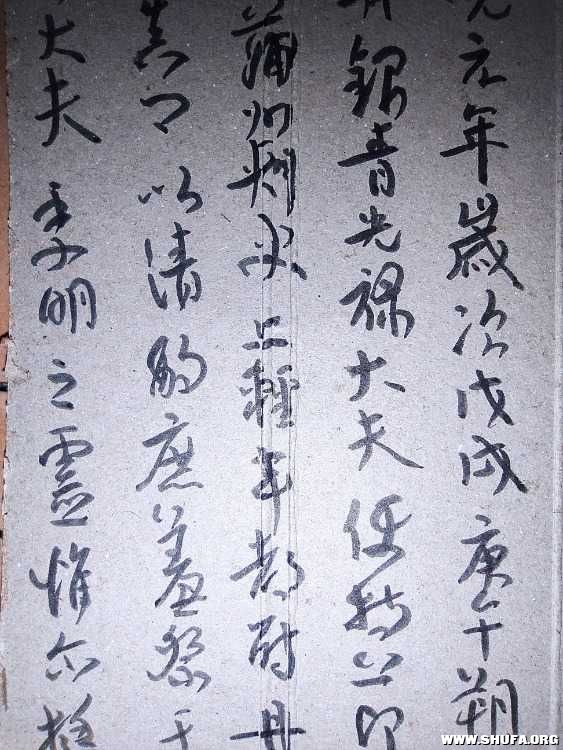 元年歲次戊戌庚午朔
銀青光祿大夫使持節
蒲州刺史上輕車都尉丹
真卿以清酌庶羞祭于
大夫季明之靈惟尔挺
WWW.SHUFA.ORG